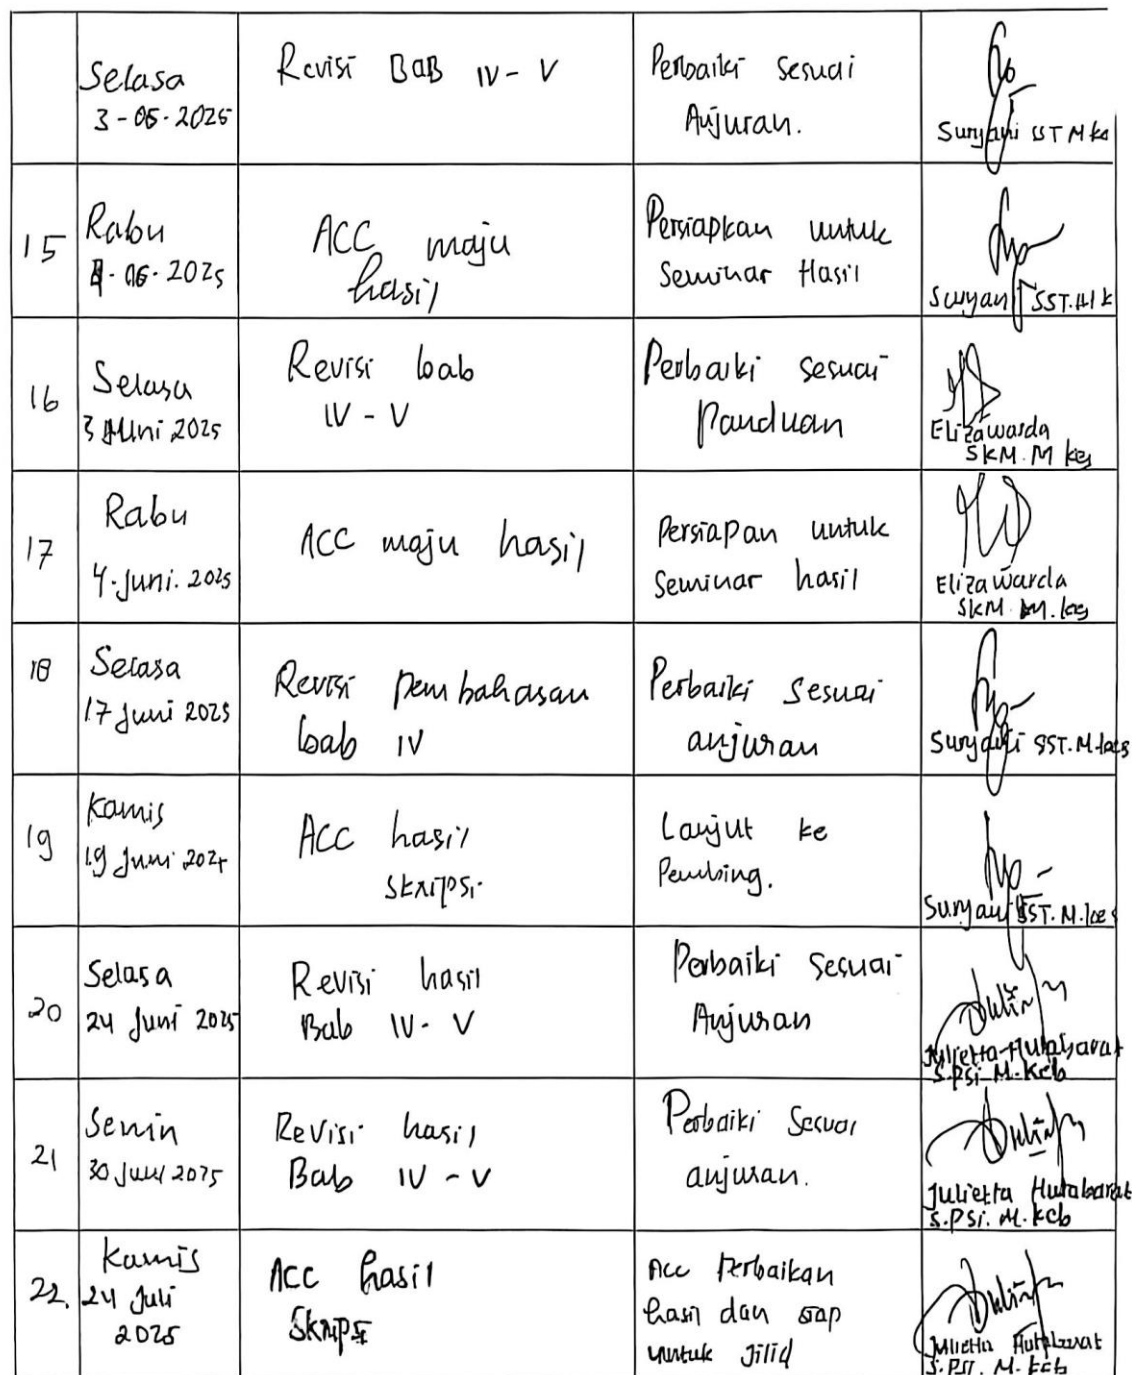 Selasa
3-06-2025
Revisi BAB IV-V
Perbaiki Sesuai
Anjuran.
Suryani SST M.Kes
15
Rabu
4-06-2025
ACC maju
hasil
Persiapkan untuk
Seminar Hasil
Suryani SST.M.K
16
Selasa
3 Juni 2025
Revisi bab
IV-V
Perbaiki sesuai
Panduan
Elizawarda
SKM. M kes
17
Rabu
4.Juni.2025
ACC maju hasil
Persiapan untuk
Seminar hasil
Elizawarda
SKM. M.kes
18
Selasa
17 Juni 2025
Revisi pembahasan
bab IV
Perbaiki Sesuai
anjuran
Suryani SST.M.kes
19
Kamis
19 Juni 2025
ACC hasil
Skripsi
Lanjut ke
Pembing.
Suryani SST.M.kes
20
Selasa
24 Juni 2025
Revisi hasil
Bab IV-V
Perbaiki Sesuai
Anjuran
Julietta Hutabarat
S.Psi M.Keb
21
Senin
30 Juni 2025
Revisi hasil
Bab IV-V
Perbaiki Sesuai
anjuran.
Julietta Hutabarat
S.Psi. M.Keb
22.
Kamis
24 Juli
2025
ACC hasil
Skripsi
Acc Perbaikan
hasil dan siap
untuk Jilid
Julietta Hutabarat
S.Psi. M.Keb